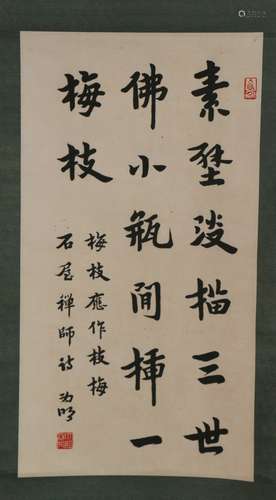 素壁淡描三世
佛小瓶間插一
梅枝
梅枝應作枝梅
石屋禪師詩